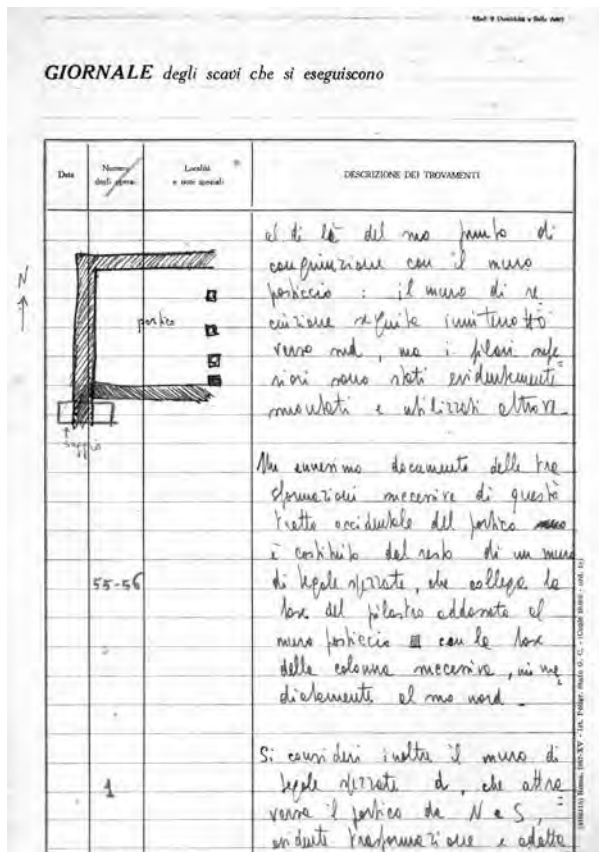 Mod. 9 (Antichità e Belle Arti)
GIORNALE degli scavi che si eseguiscono
Data
Numero
degli operai
Località
e nomi speciali
DESCRIZIONE DEI TROVAMENTI
N
portico
saggio
55-56
1
al di là del suo punto di
congiunzione con il muro
posticcio : il muro di re
cinzione seguita ininterrotto
verso sud, ma i pilastri
sono stati evidentemente
smontati e utilizzati altrove.
Un ennesimo documento delle tra
sformazioni successive di questo
tratto occidentale del portico
è costituito dal resto di un muro
di tegole spezzate, che collega la
base del pilastro addossato al
muro posticcio con la base
della colonna successiva, im me
diatamente al suo nord.
Si consideri inoltre il muro di
tegole spezzate d, che attra
versa il portico da N a S,
evidente trasformazione e adatta